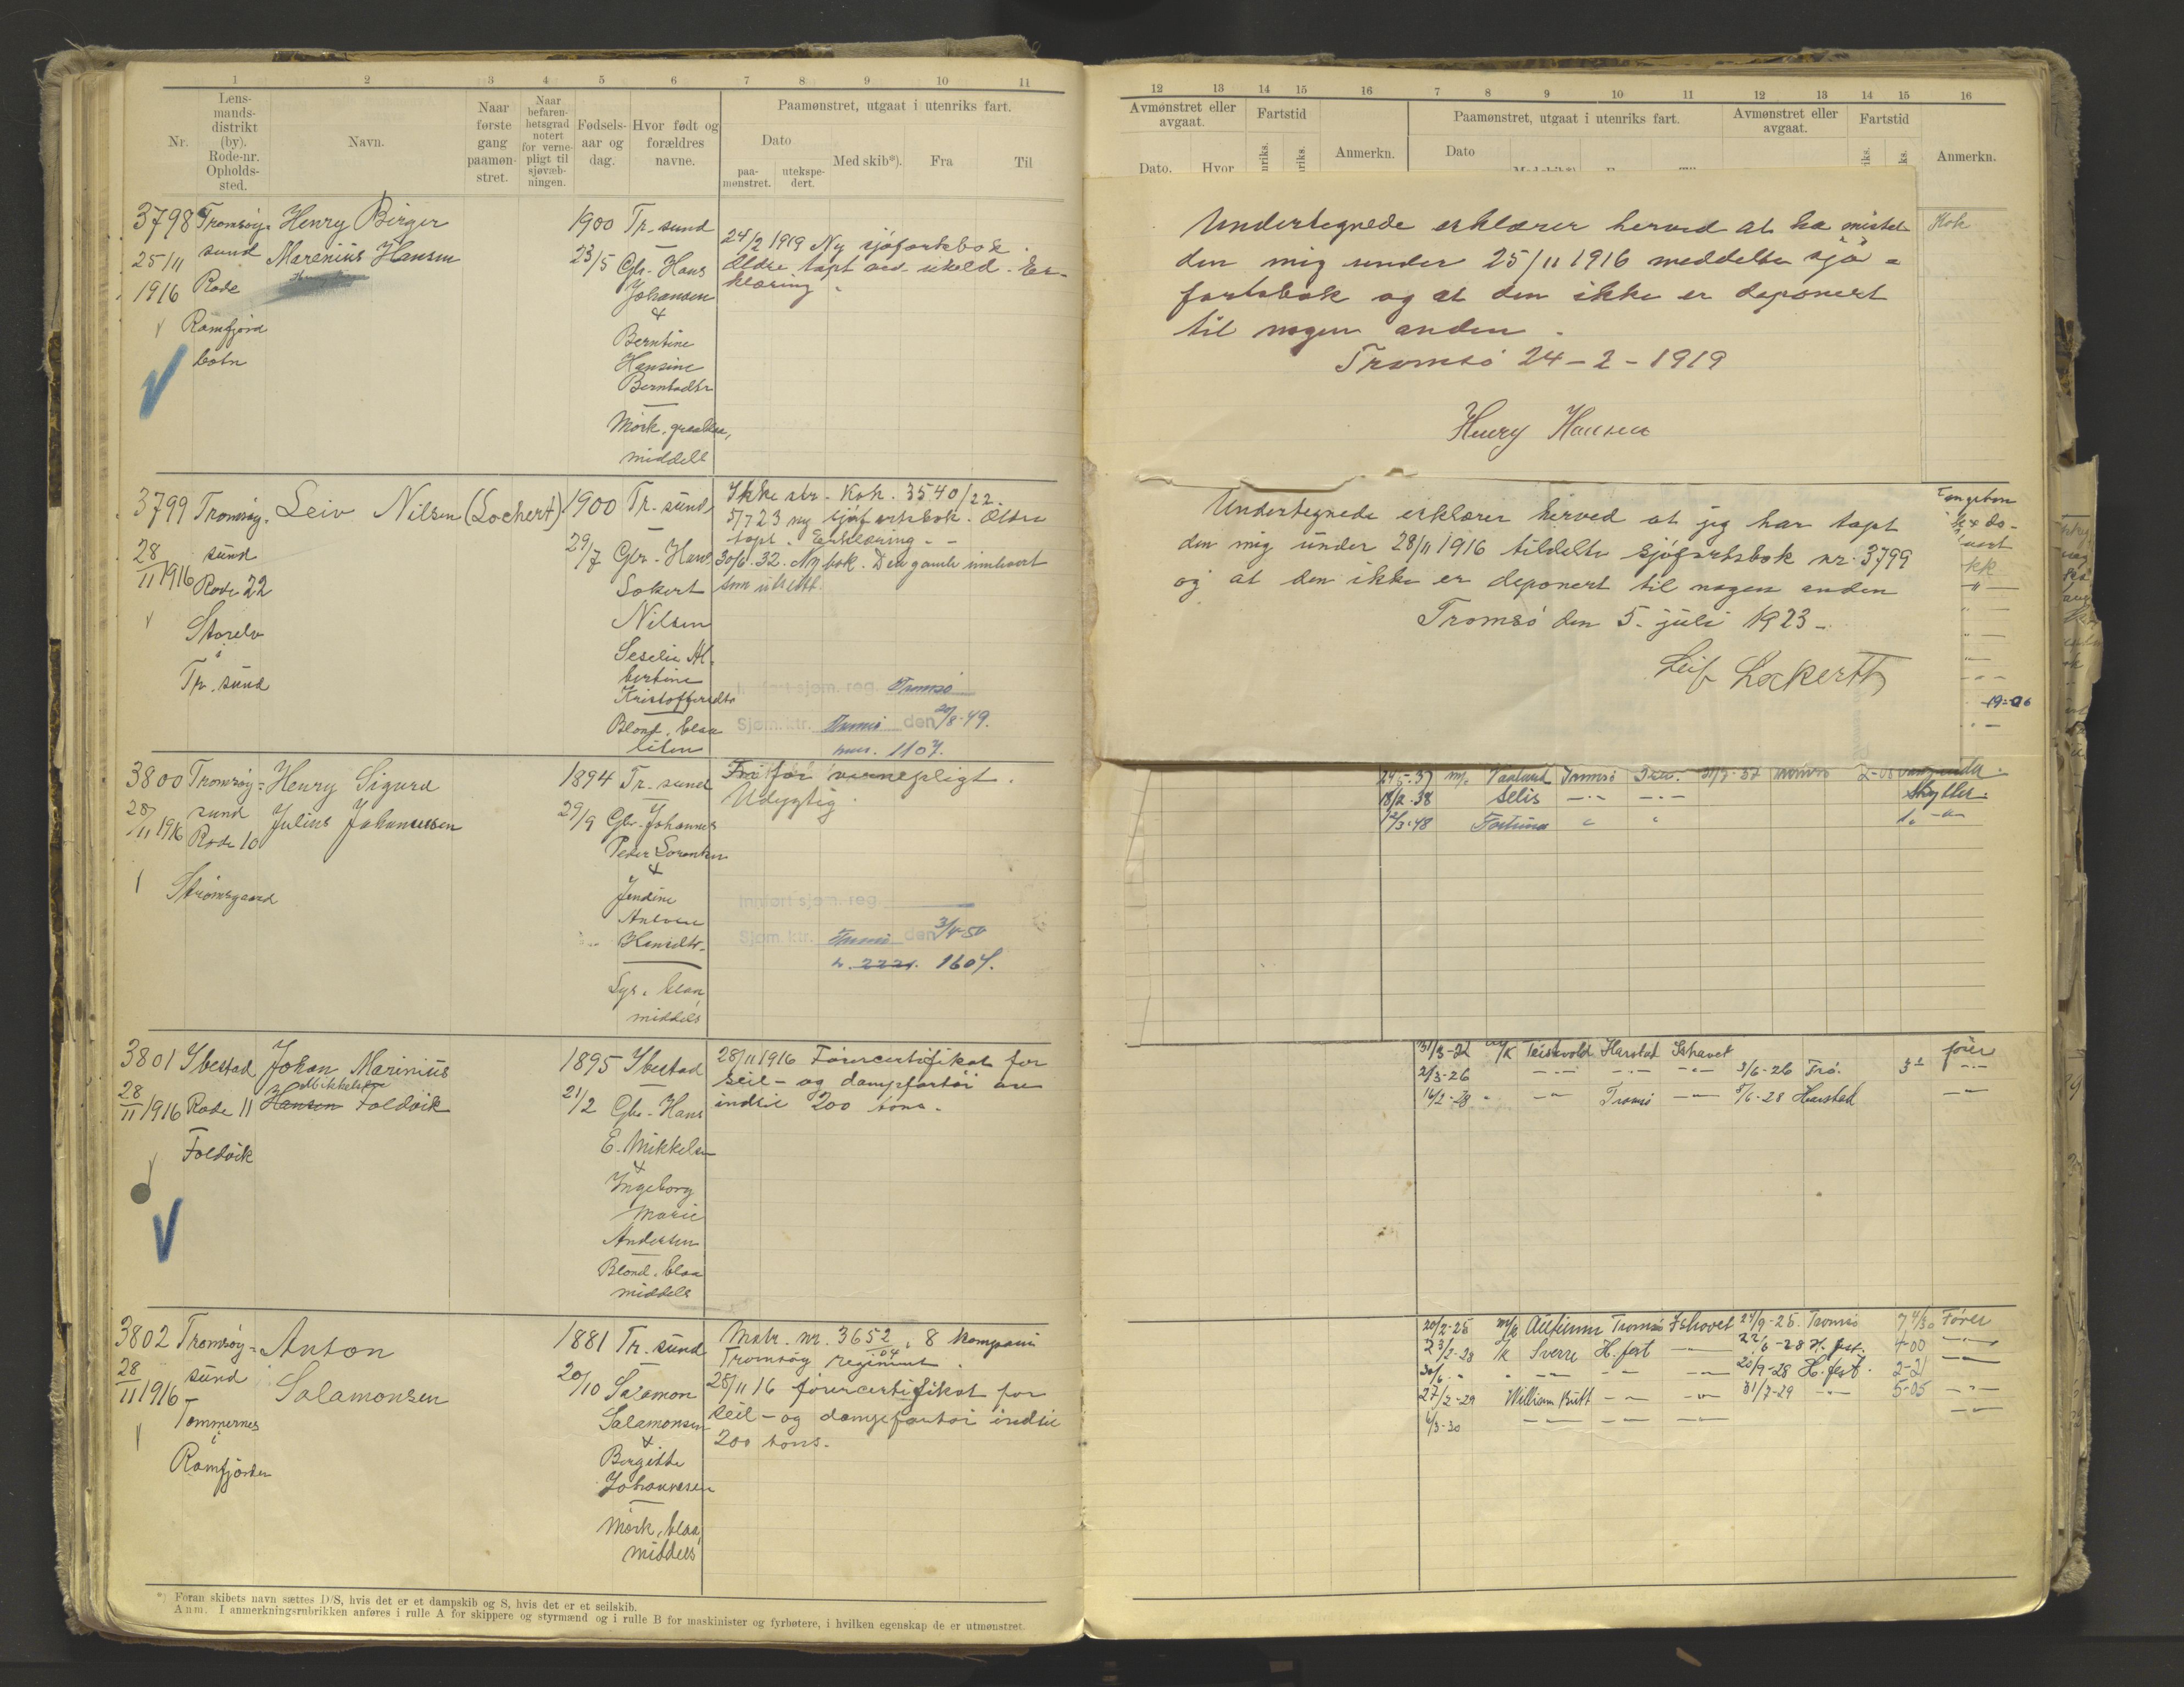 1 2 3 4 5 6 7 8 9 10 11
Nr.
Lens-
mands-
distrikt
(by).
Rode-nr.
Opholds-
sted.
Navn.
Naar
første
gang
paamøn-
stret.
Naar
befaren-
hetsgrad
notert
for verne-
pligt til
sjøvæb-
ningen.
Fødsels-
aar og
dag.
Hvor født og
forældres
navne.
Paamønstret, utgaat i utenriks fart.
Dato
paa-
mønstret.
utekspe-
dert.
Med skib*).
Fra
Til
3798
25/11
1916
Tromsøy-
sund
Rode
Ramfjord
botn
Henry Birger
Marenius Hansen
1900
23/5
Tr. sund
Gbr. Hans
Johansen
&
Berntine
Hansine
Berntsdtr
Mørk, graablaa,
middels
24/2 1919 Ny sjøfartsbok.
Ældre tapt ved uheld. Er-
klæring
3799
28/11 1916
Tromsøy-
sund
Rode 22
Storelv
i
Tr. sund
Leiv Nilsen (Lochert)
1900
29/7
Tr. sund
Gbr. Hans
Lokert
Nilsen
Seselie Al-
bertine
Kristoffersdtr
Blond, blaa
liten
Ikke str. Kok. 3540/22.
5/7 23 ny sjøfartsbok. Ældre
tapt. Erklæring
30/6.32. Ny bok. Den gamle innlevert
som utslitt.
Innført sjøm. reg. Tromsø
Sjøm.ktr. Tromsø den 20/8-49.
nr. 1107.
3800
28/11 1916
Tromsøy-
sund
Rode 10
Strømsgaard
Henry Sigurd
Julius Johannessen
1894
29/9
Tr. sund
Gbr. Johannes
Peder Lorentsen
&
Jendine
Hansdtr.
Lys, blaa
middels
Fri for vernepligt.
Udygtig.
Innført sjøm. reg.
Sjøm.ktr. Tromsø den 3/5-50
1607.
3801
28/11 1916
Ibestad
Rode 11
Foldvik
Johan Marinius
Mikkelsen
Hansen Foldvik
1895
21/2
Ibestad
Gbr. Hans
E. Mikkelsen
&
Ingeborg
Marie
Andersen
Blond, blaa
middels
28/11 1916 Førercertifikat for
seil- og dampfartøi av
indtil 200 tons.
3802
28/11 1916
Tromsøy-
sund
Tommernes
i
Ramfjorden
Anton
Salamonsen
1881
20/10
Tr. sund
Salamon
Salamonsen
&
Bergitte
Johannesen
Mørk, blaa,
middels
Matr. nr. 3652/04, 8 kompani
Tromsøy regiment.
28/11 16 førercertifikat for
seil- og dampfartøi indtil
200 tons.
*) Foran skibets navn sættes D/S, hvis det er et dampskib og S, hvis det er et seilskib.
Anm. I anmerkningsrubrikken anføres i rulle A for skippere og styrmænd og i rulle B for maskinister og fyrbøtere, i hvilken egenskap de er utmønstret.
12 13 14 15 16 7 8 9 10 11 12 13 14 15 16
Avmønstret eller
avgaat.
Fartstid
Anmerkn.
Dato.
Hvor
Paamønstret, utgaat i utenriks fart.
Dato
Avmønstret eller
avgaat.
Fartstid
Anmerkn.
Kok
Undertegnede erklærer herved at ha mistet
den mig under 25/11 1916 meddelte sjø-
fartsbok og at den ikke er deponert
til nogen anden.
Tromsø 24-2-1919
Henry Hansen
Undertegnede erklærer herved at jeg har tapt
den mig under 28/11 1916 tildelte sjøfartsbok nr. 3799
og at den ikke er deponert til nogen anden
Tromsø den 5. juli 1923
Leif Lokertt
18/2-38 Selis Skytter
12/3-48 Fortuna
31/3-22 m/k Teistvold Harstad Ishavet fører
2/3-26 3/6-26 Trø.
16/2-28 Tromsø 5/6-28 Harstad
20/2-25 m/k Autumn Tromsø Ishavet 24/9-25 Tromsø 7 4/30 Fører
23/2-28 /k Sverre H.fest 22/6-28 H.fest. 4-00
30/6 20/9-28 H.fest. 2-21
27/2-29 William Butt 31/7-29 5-05
6/3-30